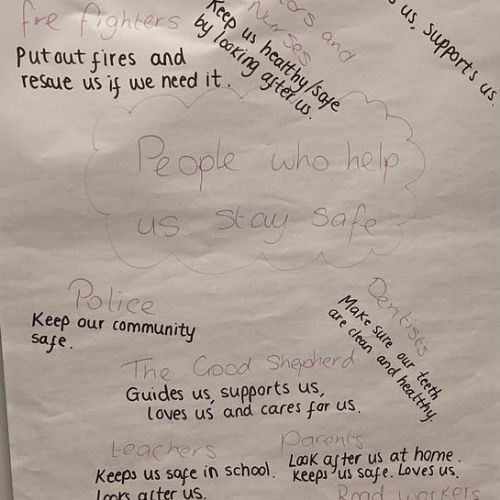 fire fighters
Put out fires and
rescue us if we need it.
and
Nurses
Keep us healthy/safe
by looking after us.
us, supports us.
People who help
us stay safe
Police
Keep our community
safe.
Dentists
Make sure our teeth
are clean and healthy.
The Good Shepherd
Guides us, supports us,
loves us and cares for us.
teachers
Keeps us safe in school.
Looks after us.
Parents
Look after us at home.
Keeps us safe. Loves us.
Road workers